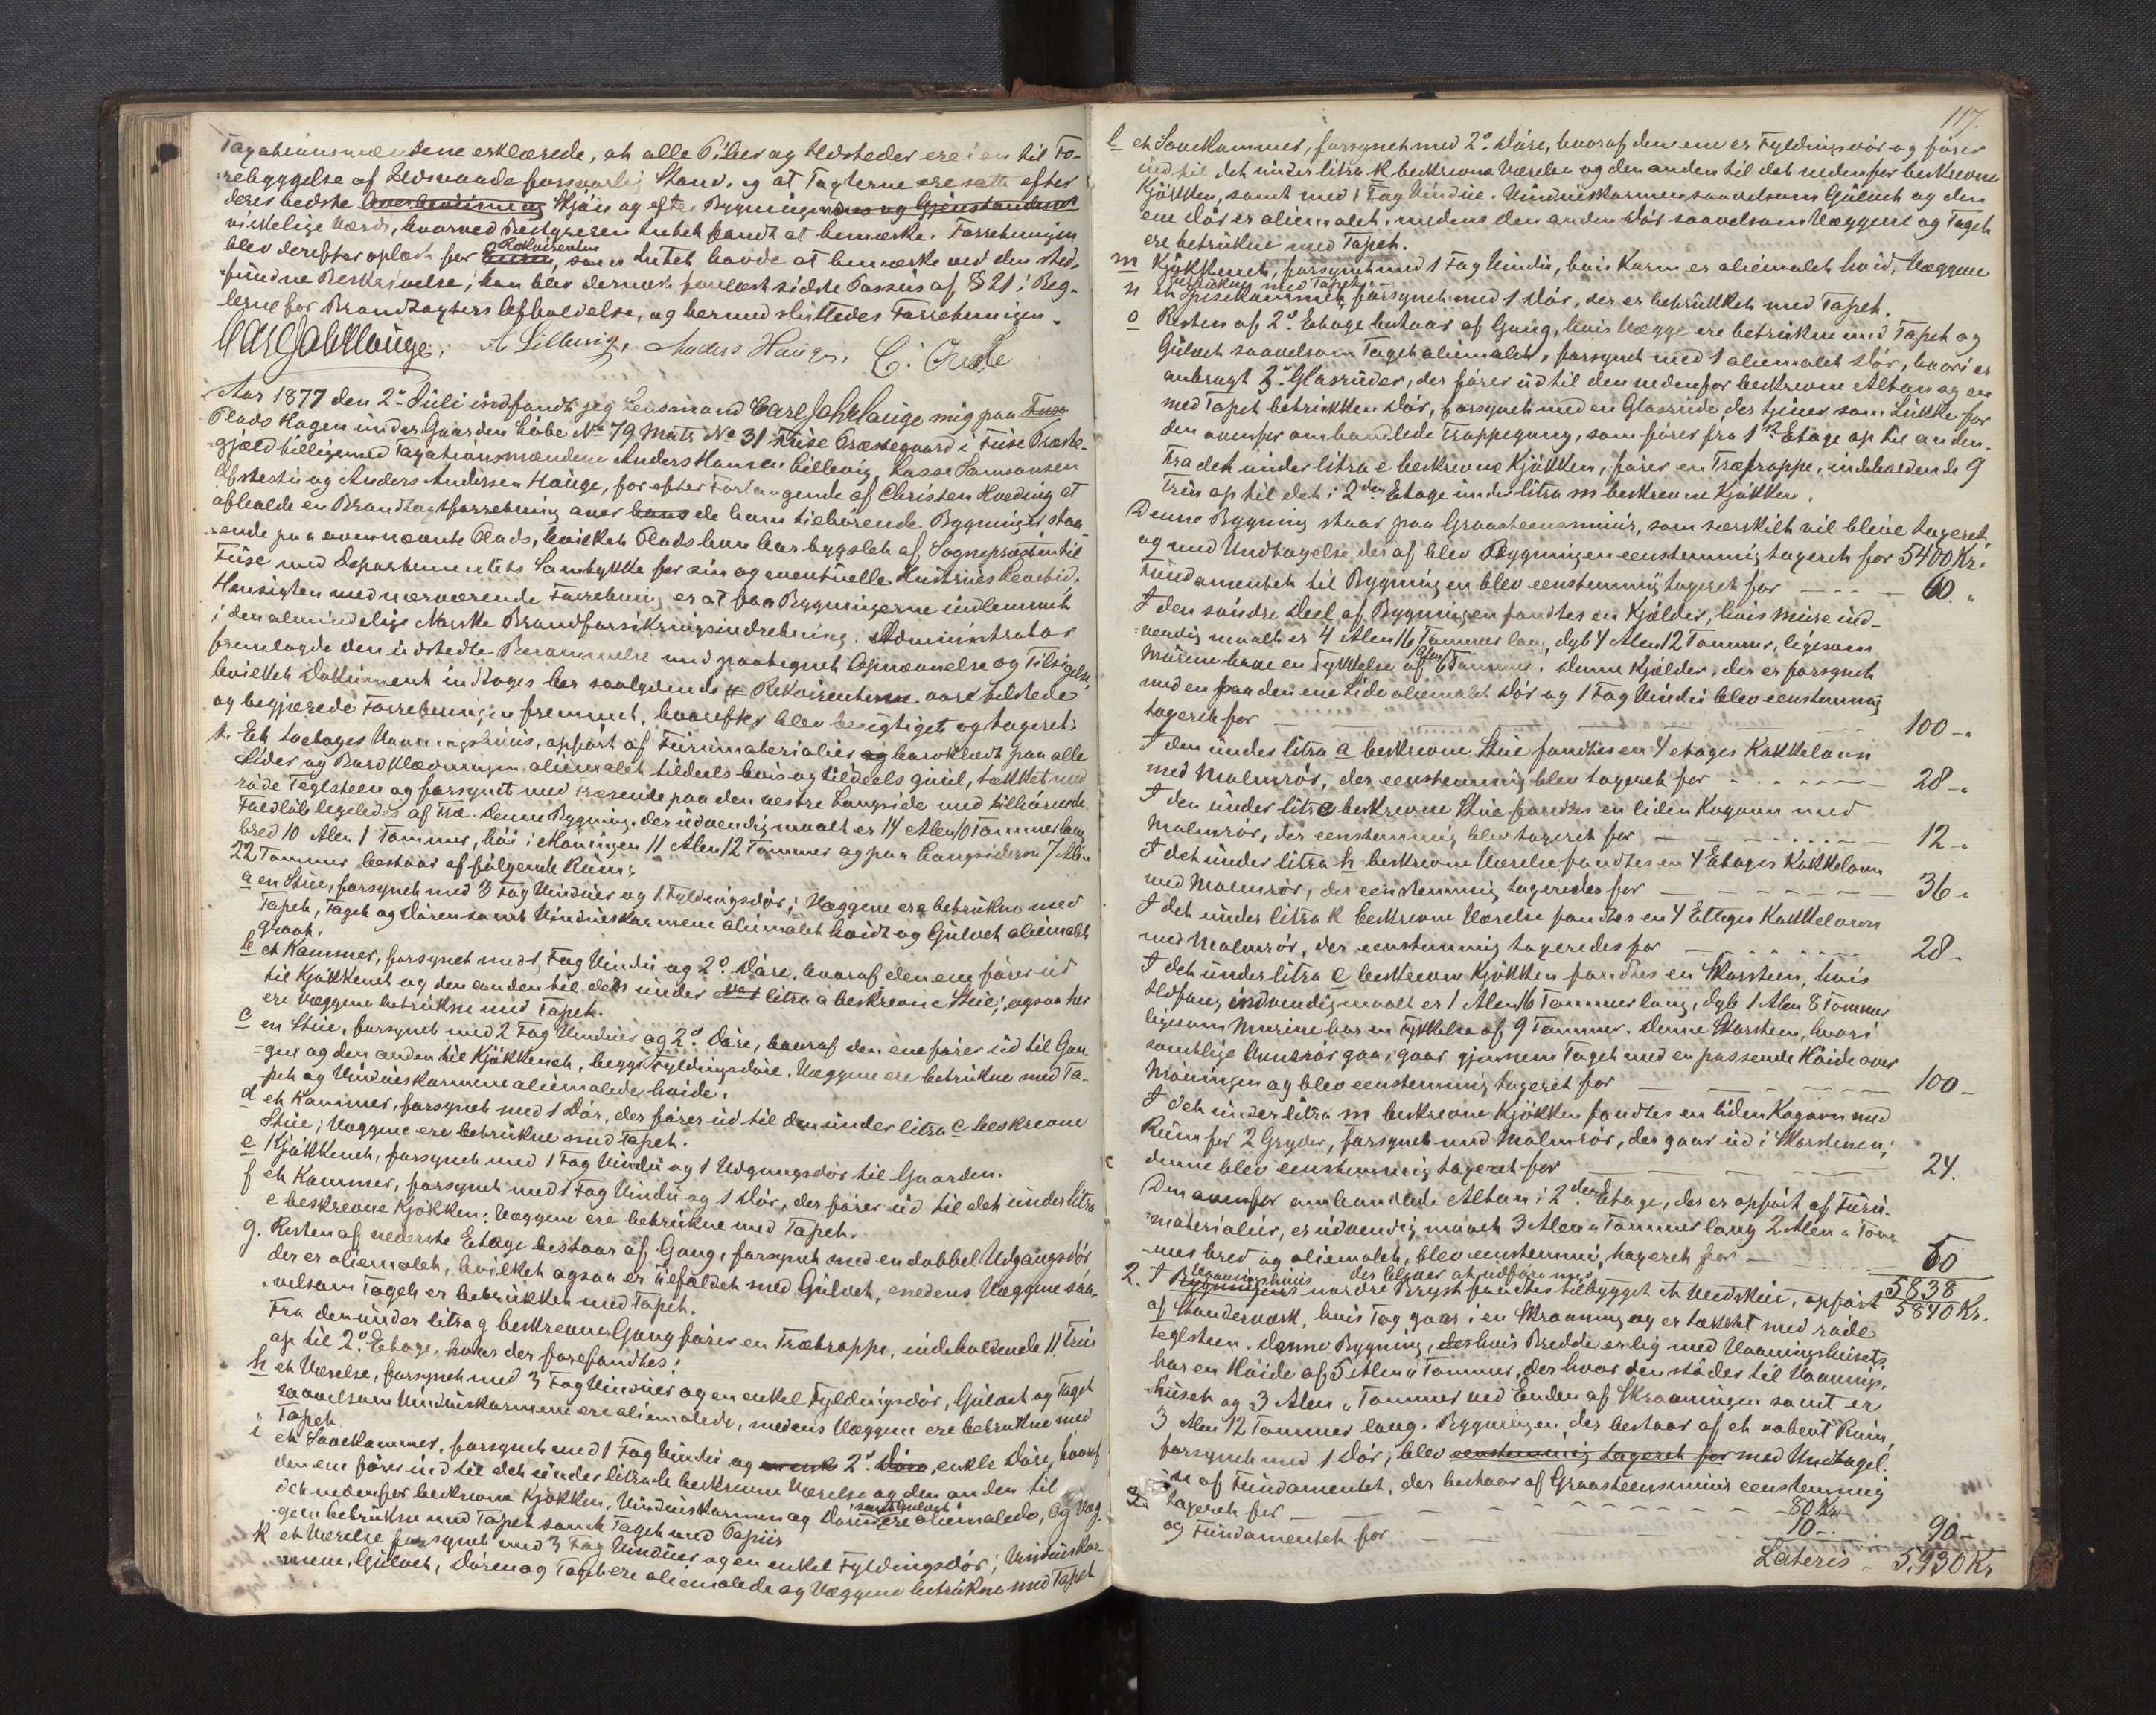 Taxationsmændene erklærede, at alle Piber og Ildsteder ere i en til Fo-
rebyggelse af Ildsvaade forsvarlig Stand, og at Taxterne ere satte efter
deres bedste Overbeviisning Skjøn og efter Bygningernes og Gjenstandenes
virkelige Værdi, hvorved Bestyreren Intet fandt at bemærke. Forretningen
blev derefter oplæst for Eieren, Rekvirenten som Intet havde at bemærke ved den sted-
fundne Beskrivelse; han blev dernæst forelæst sidste Passus af § 21 i Reg-
lerne for Brandtaxters Afholdelse, og hermed sluttedes Forretningen.
Carl Joh Hauge, A Lillevig, Anders Hauge, C.
Aar 1877 den 2den Juli indfandt jeg Lensmand Carl Joh Hauge mig paa Fuse
Plads Hagen under Gaarden Løbe No 79 Matr No 31 Fuse Præstegaard i Fuse Præste-
gjæld tilligemed Taxationsmændene Anders Hansen Lillevig, Lasse Samsonsen
og Anders Anderssen Hauge, for efter Forlangende af Christen Hovding at
afholde en Brandtaxtforretning over hans de ham tilhørende Bygninger staa-
ende paa ovennævnte Plads, hvilken Plads han har bygslet af Sognepræsten til
Fuse med Departementets Samtykke for sin og eventuelle Hustrues Levetid.
Hensigten med nærværende Forretning er at faa Bygningerne indlemmet
i den almindelige Norske Brandforsikringsindretning. Administrator
fremlagde den udstedte Berammelse med paategnet Opnævnelse og Tilsigelse,
hvilket Dokument indtages her saalydende # Rekvirenten var tilstede
og begjærede Forretningen fremmet, hvorefter blev besigtiget og taxeret:
1. Et toetages Vaaningshuus, opført af Furumaterialier og bordklædt paa alle
Sider og Bordklædningen oliemalet tildeels hvis og tildeels guul, tækket med
røde Teglsteen og forsynet med Trærende paa den vestre Langside med tilhørende
Nedløb ligeledes af Træ. Denne Bygning, der udvendig maalt er 14 Alen 10 Tommer lang
bred 10 Alen 1 Tomme, høi i Møningen 11 Alen 12 Tommer og paa Langsiderne 7 Alen
22 Tommer bestaar af følgende Rum:
a en Stue, forsynet med 3 Fag Vinduer og 1 Fyldingsdør; Væggene ere betrukne med
Tapet, Taget og Døren samt Vindueskarmene oliemalet hvidt og Gulvet oliemalet
graat.
b et Kammer, forsynet med 1 Fag Vindu og 2de Døre, hvoraf den ene fører ud
til Kjøkkenet og den anden til den under litra a beskrevne Stue; ogsaa her
ere Væggene betrukne med Tapet.
c en Stue, forsynet med 2 Fag Vinduer og 2de Døre, hvoraf den ene fører ud til Gan-
gen og den anden til Kjøkkenet, begge Fyldingsdøre. Væggene ere betrukne med Ta-
pet og Vindueskarmene oliemalede hvide.
d et Kammer, forsynet med 1 Dør, der fører ud til den under litra c beskrevne
Stue; Væggene ere betrukne med Tapet.
e Kjøkkenet, forsynet med 1 Fag Vindu og 1 Udgangsdør til Gaarden.
f et Kammer, forsynet med 1 Fag Vindu og 1 Dør, der fører ud til det under litra
e beskrevne Kjøkken; Væggene ere betrukne med Tapet.
g. Resten af nederste Etage bestaar af Gang, forsynet med en dobbel Udgangsdør
der er oliemalet, hvilket ogsaa er Tilfældet med Gulvet, medens Væggene saa-
velsom Taget er betrukket med Tapet.
Fra den under litra g beskrevne Gang fører en Trætrappe, indeholdende 11 Trin
op til 2den Etage, hvor der forefandtes:
h et Værelse, forsynet med 3 Fag Vinduer og en enkel Fyldingsdør, Gulvet og Taget
saavelsom Vindueskarmene ere oliemalede, medens Væggene ere betrukne med
Tapet.
i et Sovekammer, forsynet med 1 Fag Vindu og en enk 2de Døre, enkle Døre, hvoraf
den ene fører ind til det under litra h beskrevne Værelse og den anden til
det nedenfor beskrevne Kjøkken. Vindueskarmen og Dørene samt Gulvet ere oliemalede, og Væg-
gene betrukne med Tapet samt Taget med Papiir
k et Værelse forsynet med 3 Fag Vinduer og en enkel Fyldingsdør; Vindueskar-
mene, Gulvet, Døren og Taget ere oliemalede og Væggene betrukne med Tapet
117.
l et Sovekammer, forsynet med 2de Døre, hvoraf den ene er Fyldingsdør og fører
ind til det under litra k beskrevne Værelse og den anden til det nedenfor beskrevne
Kjøkken, samt med 1 Fag Vindue. Vindueskarmen saavelsom Gulvet og den
ene Dør er oliemalet, medens den anden Dør saavelsom Væggene og Taget
ere betrukne med Tapet.
m Kjøkkenet, forsynet med 1 Fag Vindu, hvis Karm er oliemalet hvid, Væggene
betrukne med Tapet.
n et Spisekammer, forsynet med 1 Dør, der er betrukket med Tapet.
o Resten af 2den Etage bestaar af Gang, hvis Vægge ere betrukne med Tapet og
Gulvet saavelsom Taget oliemalet, forsynet med 1 oliemalet Dør, hvori er
anbragt 2de Glasruder, der fører ud til den nedenfor beskrevne Altan og en
med Tapet betrukken Dør, forsynet med en Glasrude der tjener som Lukke for
den ovenfor omhandlede Trappegang, som fører fra 1ste Etage op til anden.
Fra det under litra e beskrevne Kjøkken, fører en Trætrappe, indeholdende 9
Trin op til det i 2den Etage under litra m beskrevne Kjøkken.
Denne Bygning staar paa Graasteensmuur, som særskilt vil blive taxeret,
og med Undtagelse deraf blev Bygningen eenstemmig taxeret for 5400 Kr.
Fundamentet til Bygningen blev eenstemmig taxeret for - - - 60. "
I den søndre Deel af Bygningen fandtes en Kjælder, hvis Mure ind-
vendig maalt er 4 Alen 16 Tommer lang, dyb 4 Alen 12 Tommer, ligesom
Murene have en Tykkelse af 1 Alen 6 Tommer. Denne Kjælder, der er forsynet
med en paa den ene Side oliemalet Dør og 1 Fag Vindu blev eenstemmig
taxeret for - - - 100 - "
I den under litra a beskrevne Stue fandtes en 4 etages Kakkelovn
med Malmrør, der eenstemmig blev taxeret for - - - 28 - "
I den under litra c beskrevne Stue fandtes en liden Kogovn med
Malmrør, der eenstemmig blev taxeret for - - - 12 - "
I det under litra h beskrevne Værelse fandtes en 4 Etages Kakkelovn
med Malmrør, der eenstemmig taxeredes for - - - 36 "
I det under litra k beskrevne Værelse fandtes en 4 Etages Kakkelovn
med Malmrør, der eenstemmig taxeredes for - - - 28 -
I det under litra e beskrevne Kjøkken fandtes en Skorsteen, hvis
Ildfang indvendig maalt er 1 Alen 16 Tommer lang, dyb 1 Alen 8 Tommer
ligesom Murene har en Tykkelse af 9 Tommer. Denne Skorsteen, hvori
samtlige Ovnsrør gaa, gaar gjennem Taget med en passende Høide over
Møningen og blev eenstemmig taxeret for - - - 100 -
I det under litra m beskrevne Kjøkken fandtes en liden Kogovn med
Rum for 2 Gryder, forsynet med Malmrør, der gaar ud i Skorstenen;
denne blev eenstemmig taxeret for - - - 24.
Den ovenfor omhandlede Altan i 2den Etage, der er opført af Furu-
materialier, er udvendig maalt 3 Alen " Tommer lang 2 Alen " Tom-
mer bred og oliemalet, blev eenstemmig taxeret for - - - 50
5838
2. I Bygningens Vaaningshuus nordre Bryst fandtes tilbygget et Vedskur, opført 5840 Kr.
af Standerværk, hvis Tag gaar i en Skraaning og er tækket med røde
Teglsteen. Denne Bygning, der hvis Bredde er lig med Vaaningshusets,
har en Høide af 5 Alen " Tommer, der hvor den støder til Vaanings-
huset og 3 Alen " Tommer ved Enden af Skraaningen samt er
3 Alen 12 Tommer lang. Bygningen, der bestaar af et aabent Rum,
forsynet med 1 Dør, blev eenstemmig taxeret for med Undtagel-
se af Fundamentet, der bestaar af Graasteensmuur eenstemmig
taxeret for - - - 80 Kr
og Fundamentet for - - - 10 - . 90 -
Lateris - 5,930 Kr